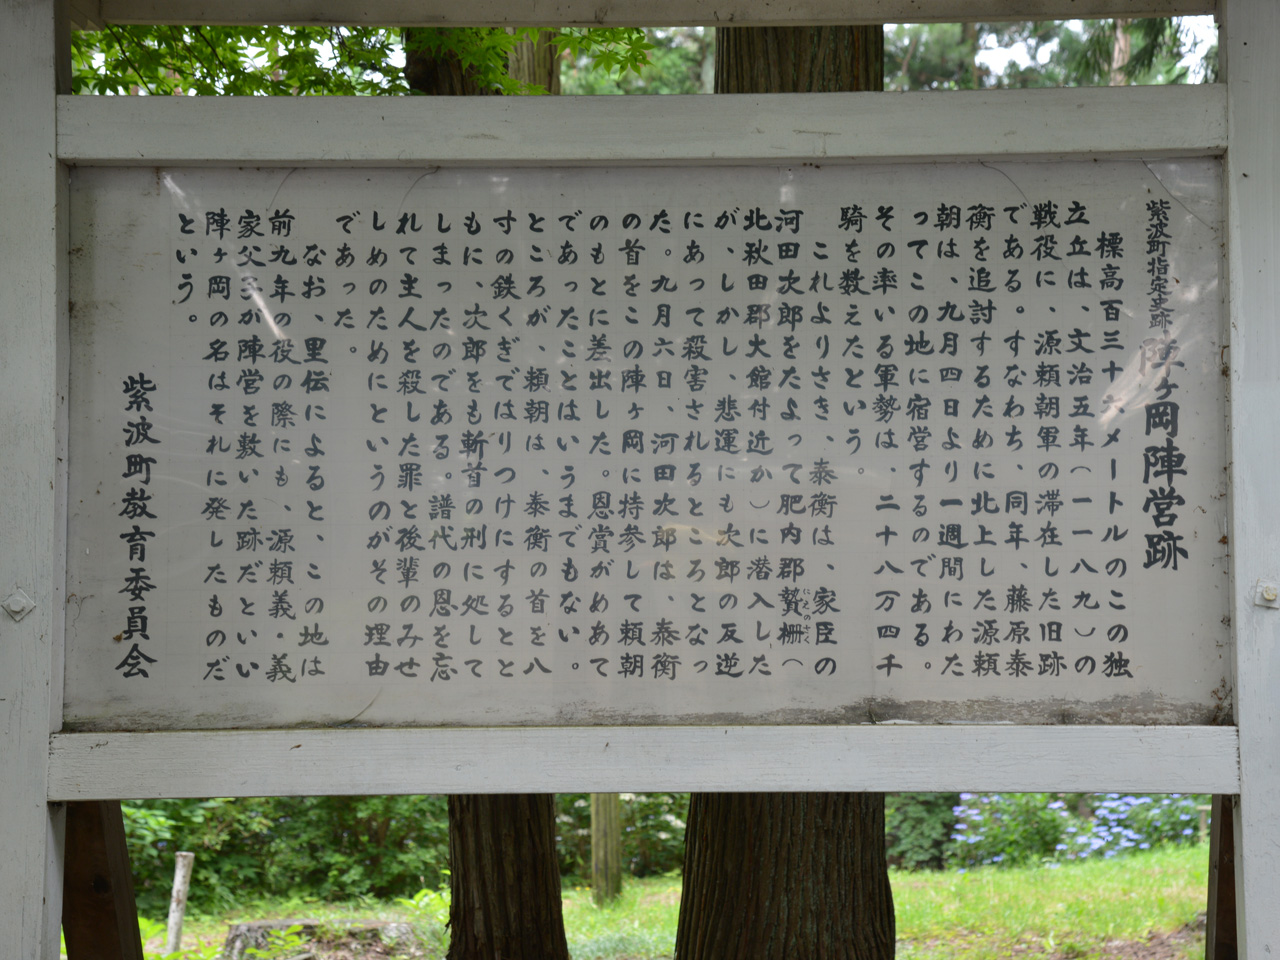 紫波町指定史跡 陣ヶ岡陣営跡
標高百三十六メートルのこの独
立丘は、文治五年（一一八九）の
戦役に、源頼朝軍の滞在した旧跡
である。すなわち、同年、藤原泰
衡を追討するために北上した源頼
朝は、九月四日より一週間にわた
ってこの地に宿営するのである。
その率いる軍勢は、二十八万四千
騎を数えたという。
これよりさき、泰衡は、家臣の
河田次郎をたよって肥内郡贄柵（
にえのさく
北秋田郡大館付近か）に潜入した
が、しかし、悲運にも次郎の反逆
にあって殺害されるところとなっ
た。九月六日、河田次郎は、泰衡
の首をこの陣ヶ岡に持参して頼朝
のもとに差出した。恩賞がめあて
であったことはいうまでもない。
ところが、頼朝は、泰衡の首を八
寸の鉄くぎではりつけにするとと
もに、次郎をも斬首の刑に処して
しまったのである。譜代の恩を忘
れて主人を殺した罪と後輩のみせ
しめのためにというのがその理由
であった。
なお、里伝によると、この地は
前九年の役の際にも、源頼義・義
家父子が陣営を敷いた跡だといい
陣ヶ岡の名はそれに発したものだ
という。
紫波町教育委員会